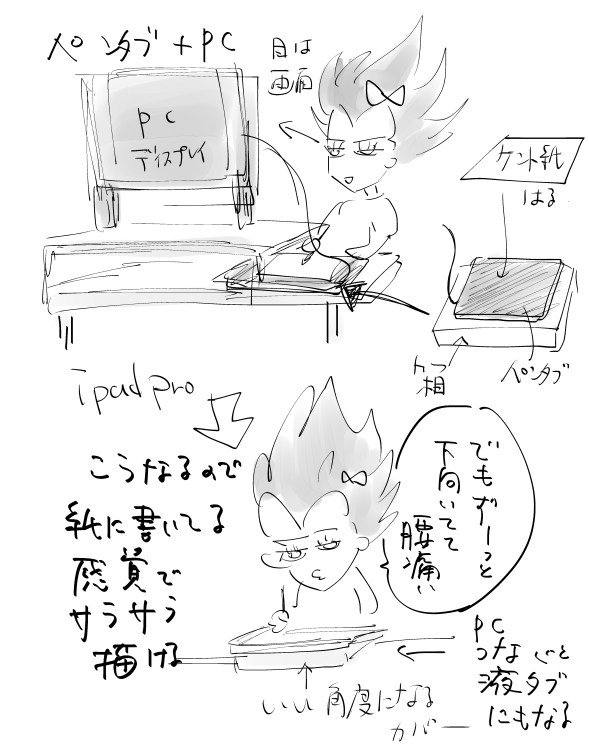 ペンタブ+PC
目は
画面
PC
ディスプレイ
ケント紙
はる
ペンタブ
ipad pro
こうなるので
紙に書いてる
感覚で
サラサラ
描ける
でもずーっと
下向いてて
腰痛い
PC
つなぐと
液タブ
にもなる
いい角度になる
カバー